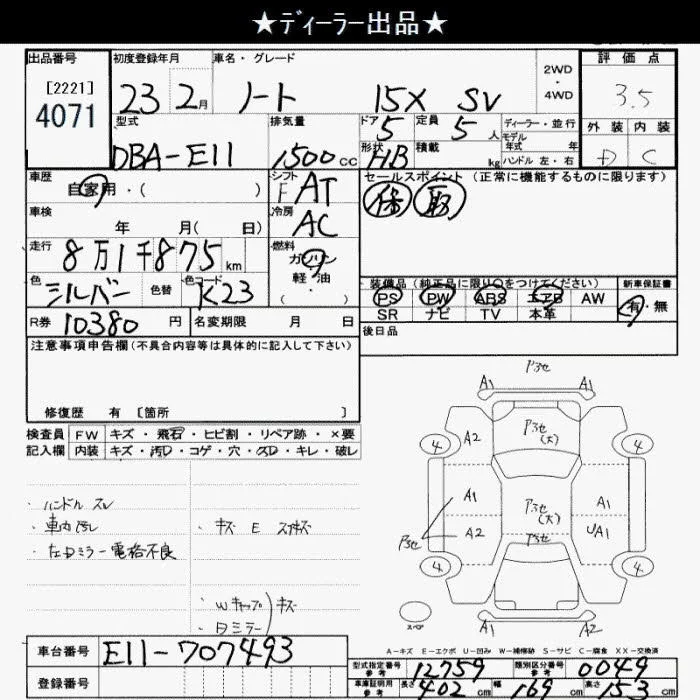 ★ディーラー出品★
出品番号 初度登録年月 車名・グレード 2WD・4WD 評価点
[2221]
4071
23 2月 ノート 15X SV 3.5
型式 排気量 ドア 定員 ディーラー・並行 外装 内装
モデル
DBA-E11 1500cc 5 5人 年式 年 D C
形状 HB 積載 kg ハンドル 左・右
車歴 シフト セールスポイント(正常に機能するものに限ります)
自家用・( ) F AT 保 取
車検 冷房
年 月( 日) AC
走行 燃料
8万1千875km ガソリン
軽・油
・( )
色 色替 色コード 装備品(純正品に限り○をつけてください) 新車保証書
シルバー K23 PS PW ABS エアB AW 有・無
SR ナビ TV 本革
R券 10380円 名変期限 月 日 後日品
注意事項申告欄(不具合内容等は具体的に記入して下さい)
修復歴 有 [箇所 ]
検査員 FW キズ・飛石・ヒビ割・リペア跡・×要
記入欄 内装 キズ・汚D・コゲ・穴・スD・キレ・破レ
・ハンドル スレ
・車内汚レ
・左Dミラー電格不良
・キズ E スリキズ
・Wキャップ キズ
・Dミラー
Pヨセ
A1 A1
4 A2 Pヨセ(大) 4
A1 Pヨセ(大) A1
Pヨセ A2 Pヨセ UA1
4 4
スペア A1 A2
A-キズ E-エクボ U-凹み W-補修跡 S-サビ C-腐食 XX-交換済
車台番号 E11-707493
登録番号
型式指定番号 参考 12759 類別区分番号 参考 0049
車庫証明用 参考 長さ 402cm 幅 169cm 高さ 153cm